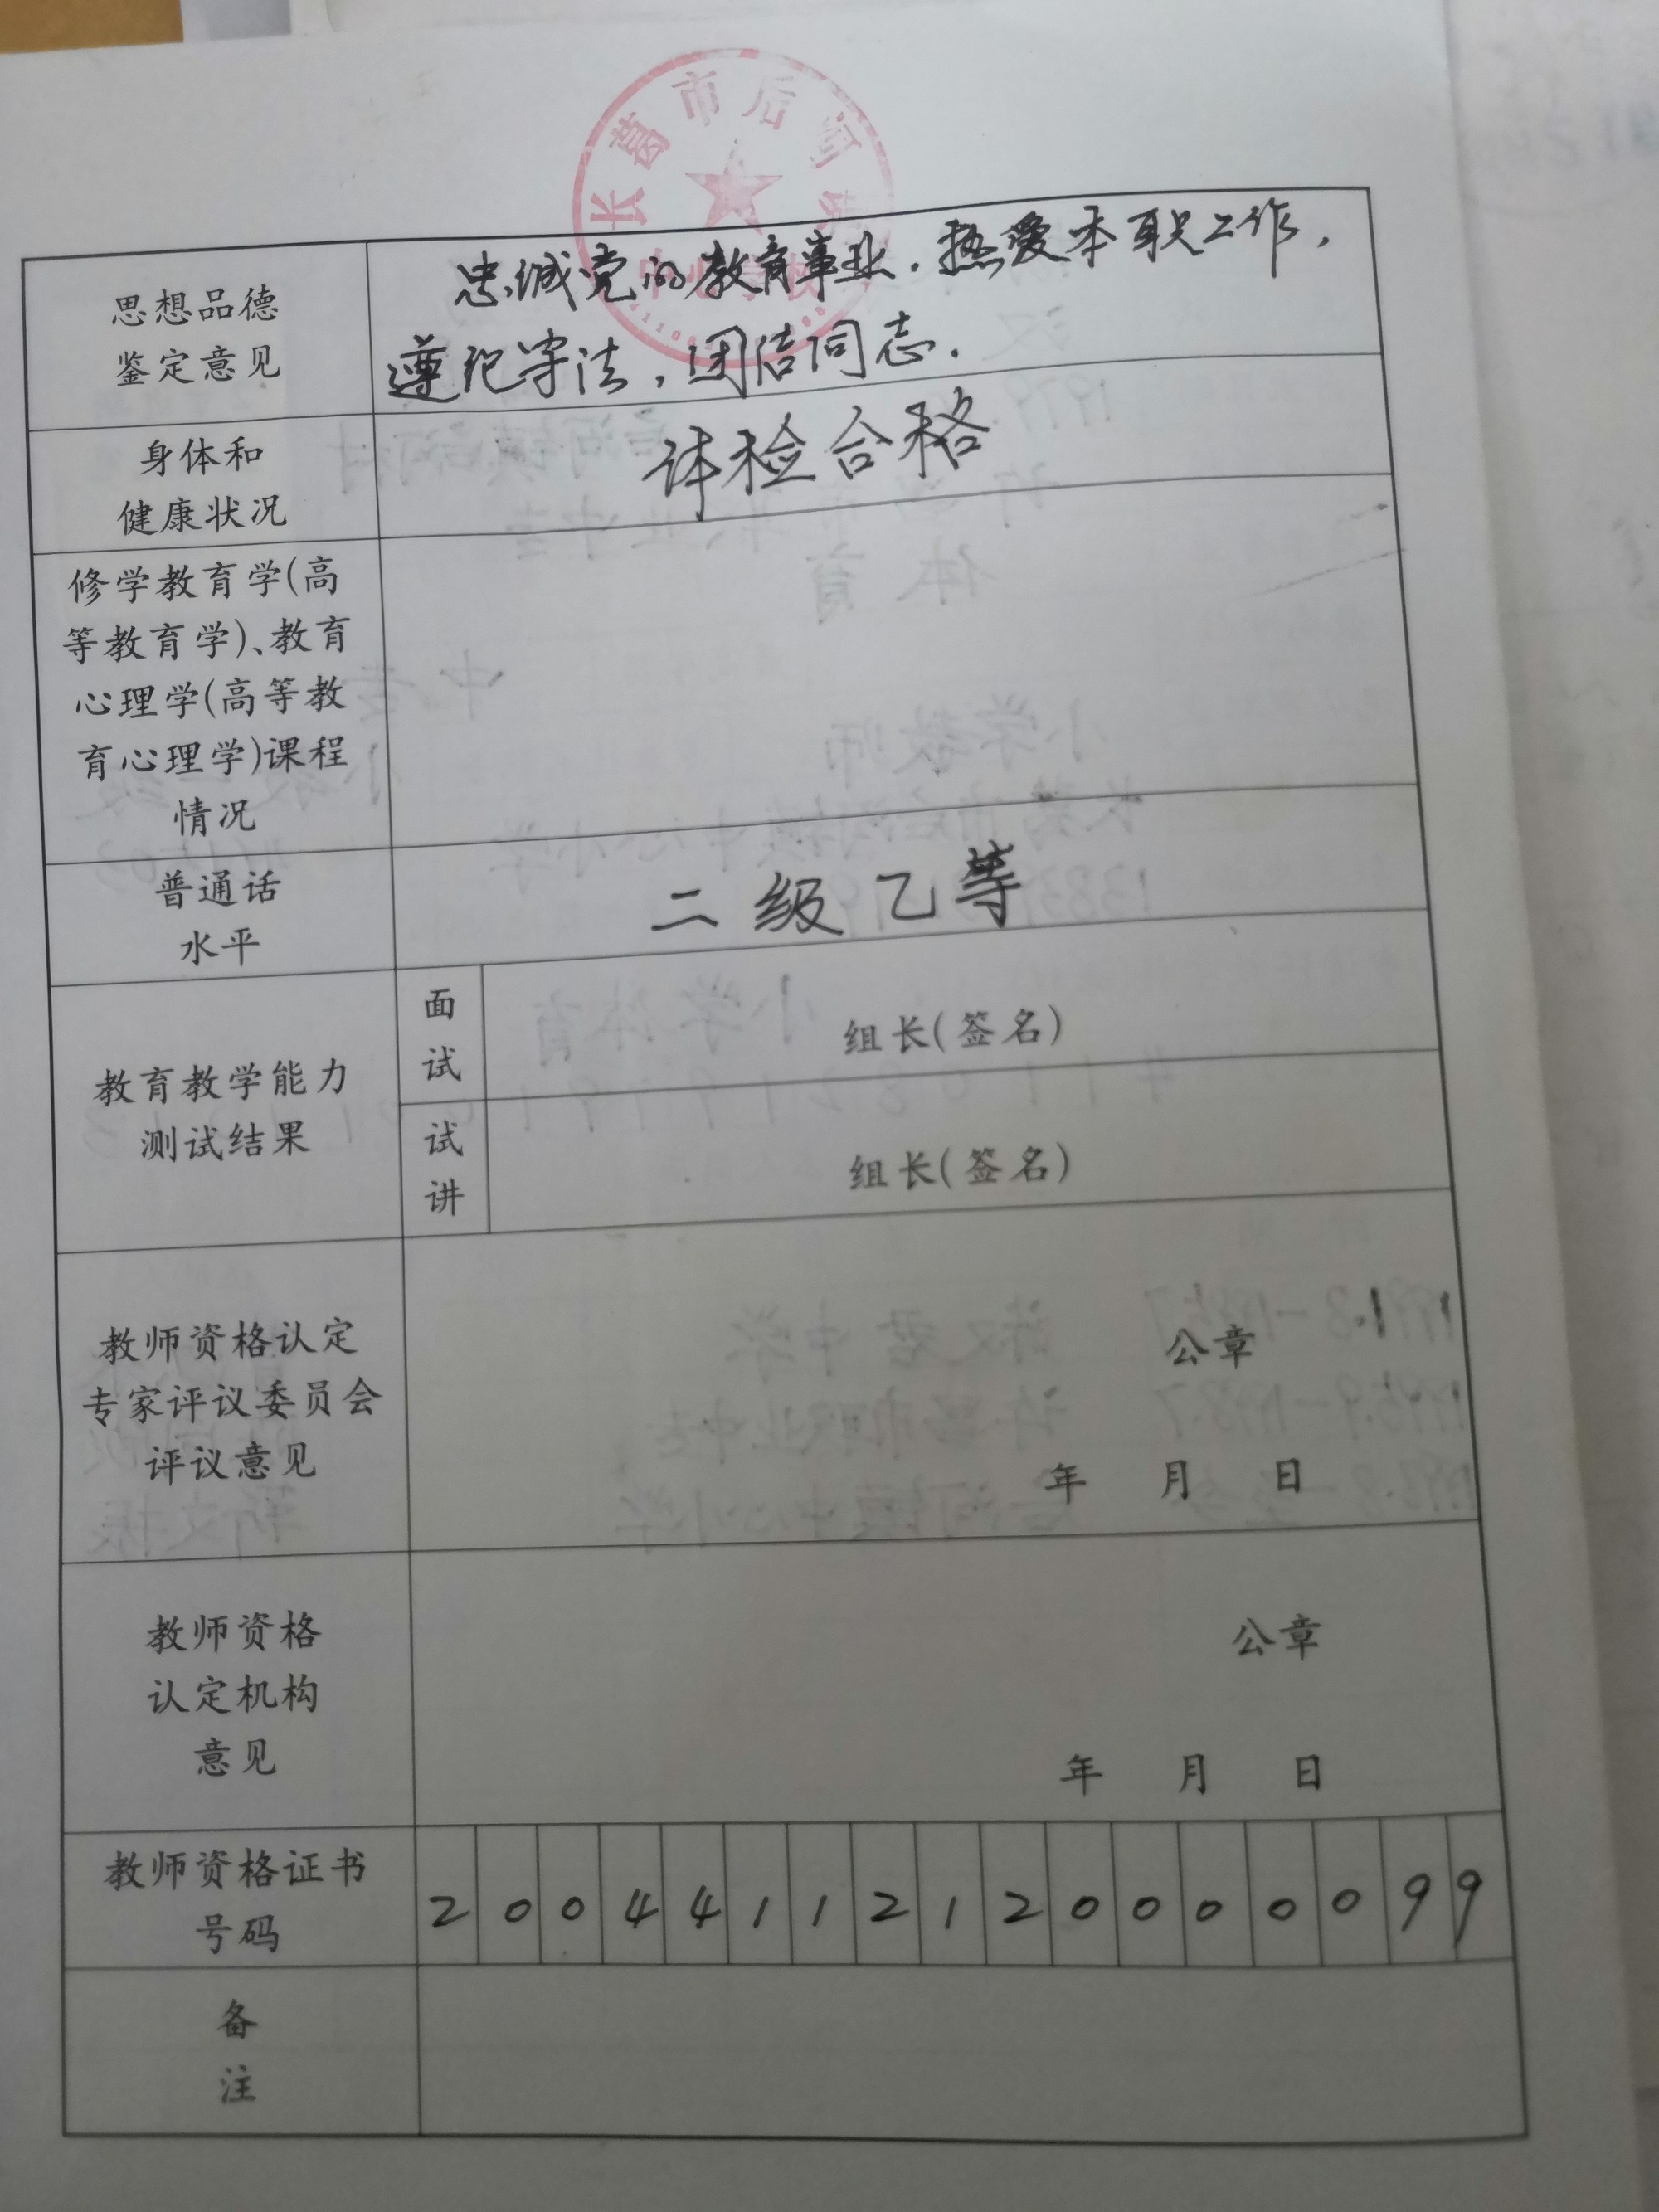 长葛市后河镇
忠诚党的教育事业.热爱本职工作,
遵纪守法,团结同志.
思想品德
鉴定意见
体检合格
身体和
健康状况
修学教育学(高
等教育学)、教育
心理学(高等教
育心理学)课程
情况
二级乙等
普通话
水平
面
试
组长(签名)
教育教学能力
测试结果
试
讲
组长(签名)
教师资格认定
专家评议委员会
评议意见
公章
年 月 日
教师资格
认定机构
意见
公章
年 月 日
教师资格证书
号码
2 0 0 4 4 1 1 2 1 2 0 0 0 0 0 9 9
备
注